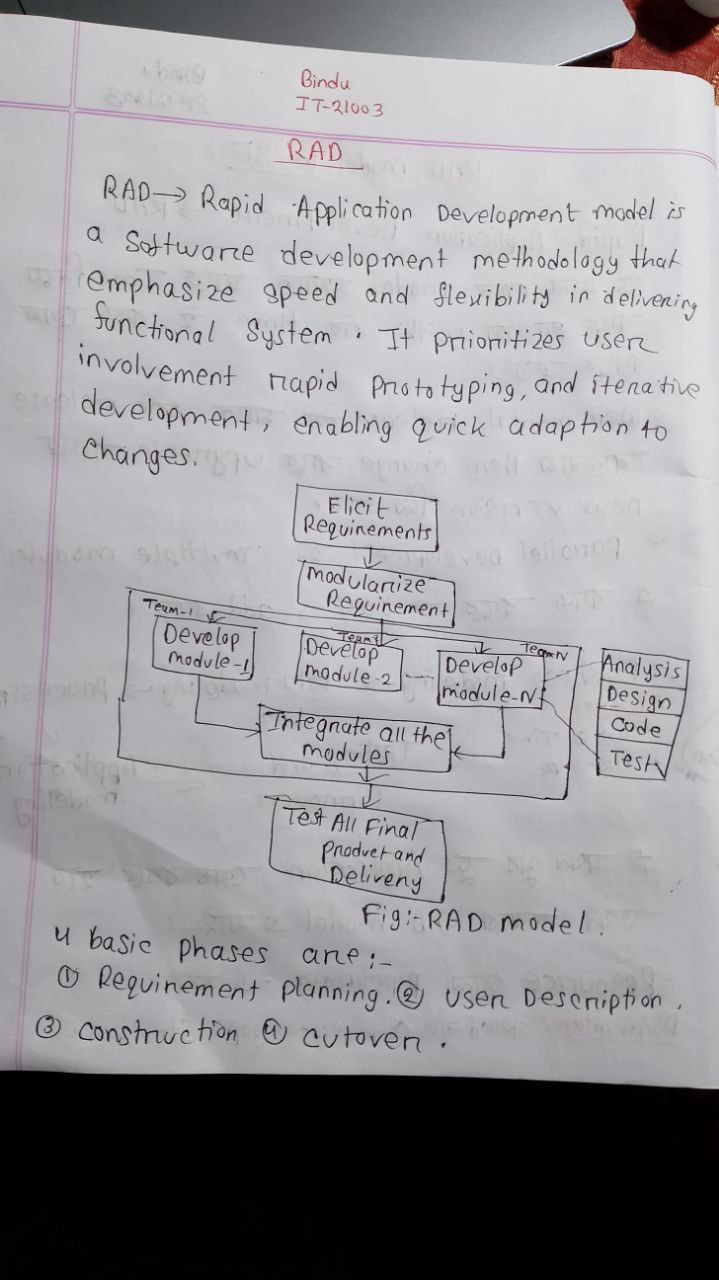 Bindu
IT-21003
RAD
RAD→ Rapid Application Development model is
a Software development methodology that
emphasize speed and flexibility in delivering
functional System. It prioritizes user
involvement rapid prototyping, and iterative
development, enabling quick adaption to
changes.
Elicit
Requirements
Modularize
Requirement
Team-1
Develop
module-1
Team-2
Develop
module-2
....
Team-N
Develop
module-N
Analysis
Design
Code
Test
Integrate all the
modules
Test All Final
Product and
Delivery
Fig:- RAD model.
4 basic phases are:-
① Requirement planning. ② User Description.
③ construction ④ cutover.